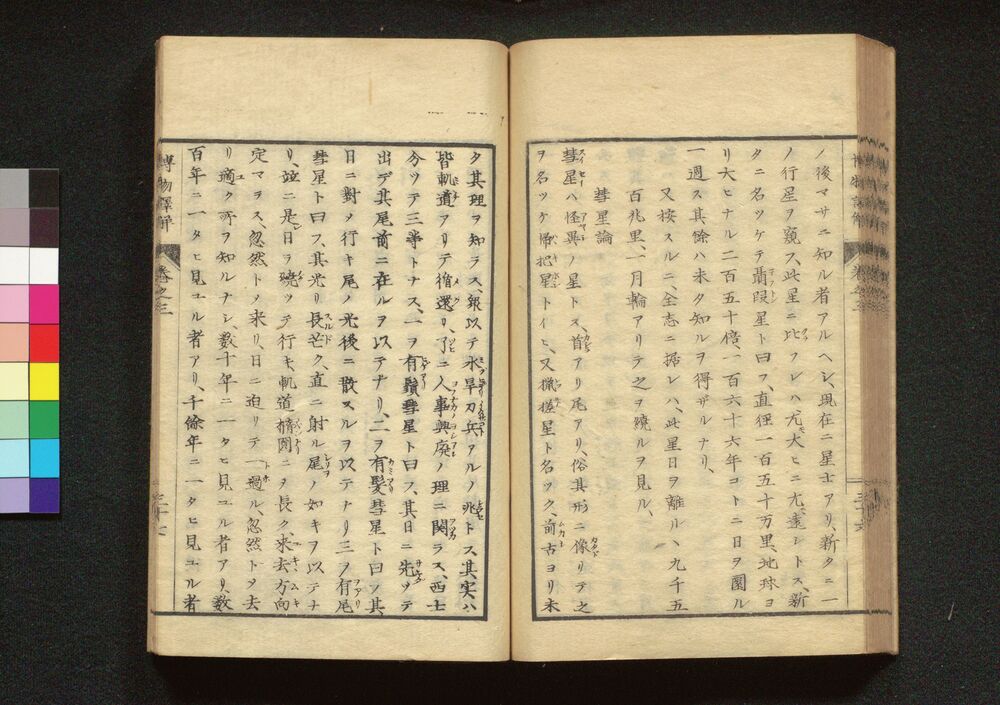 ノ後マサニ知ル者アルヘシ、現在ニ星士アリ、新タニ一
ノ行星ヲ窺ス、此星ニ比フレハ尤大ヒニ尤遠シトス、新
タニ名ツケテ段星ト曰フ、直徑一百五十万里、地球ヨ
リ大ヒナル二百五十倍、一百六十六年コトニ日ヲ圜ル
一週ス其餘ハ未タ知ルヲ得ザルナリ、
又按スルニ、全志ニ据レハ、此星日ヲ離ルヽ九千五
百兆里、一月輪アリテ之ヲ繞ルヲ見ル、
彗星論
彗星ハ怪異ノ星トス、首アリ尾アリ、俗其形ニ像リテ之
ヲ名ツケ帚把星トイヒ、又攙搓星ト名ツク、前古ヨリ未
タ其理ヲ知ラス、緫以テ水旱刀兵アルノ兆トス、其実ハ
皆軌道アリテ循還リ、了ニ人事興廃ノ理ニ関ラス、西士
分ツテ三等トナス、一ヲ有鬚彗星ト曰フ、其日ニ先ツテ
出デ其尾前ニ在ルヲ以テナリ、二ヲ有髮彗星ト曰フ其
日ニ對メ行キ尾ノ光後ニ散スルヲ以テナリ三ヲ有尾
彗星ト曰フ、其光リ長芒ク、直ニ射ル尾ノ如キヲ以テナ
リ、竝ニ是日ヲ繞ツテ行キ、軌道橢圓ニヲ長ク、来去方向
定マラス、忽然トメ来リ、日ニ迫リテ一過ル、忽然トヲ去
リ適ク所ヲ知ルナシ、数十年ニ一タヒ見ユル者アリ、数
百年ニ一タヒ見ユル者アリ、千餘年ニ一タヒ見ユル者
博物釋解
卷之三